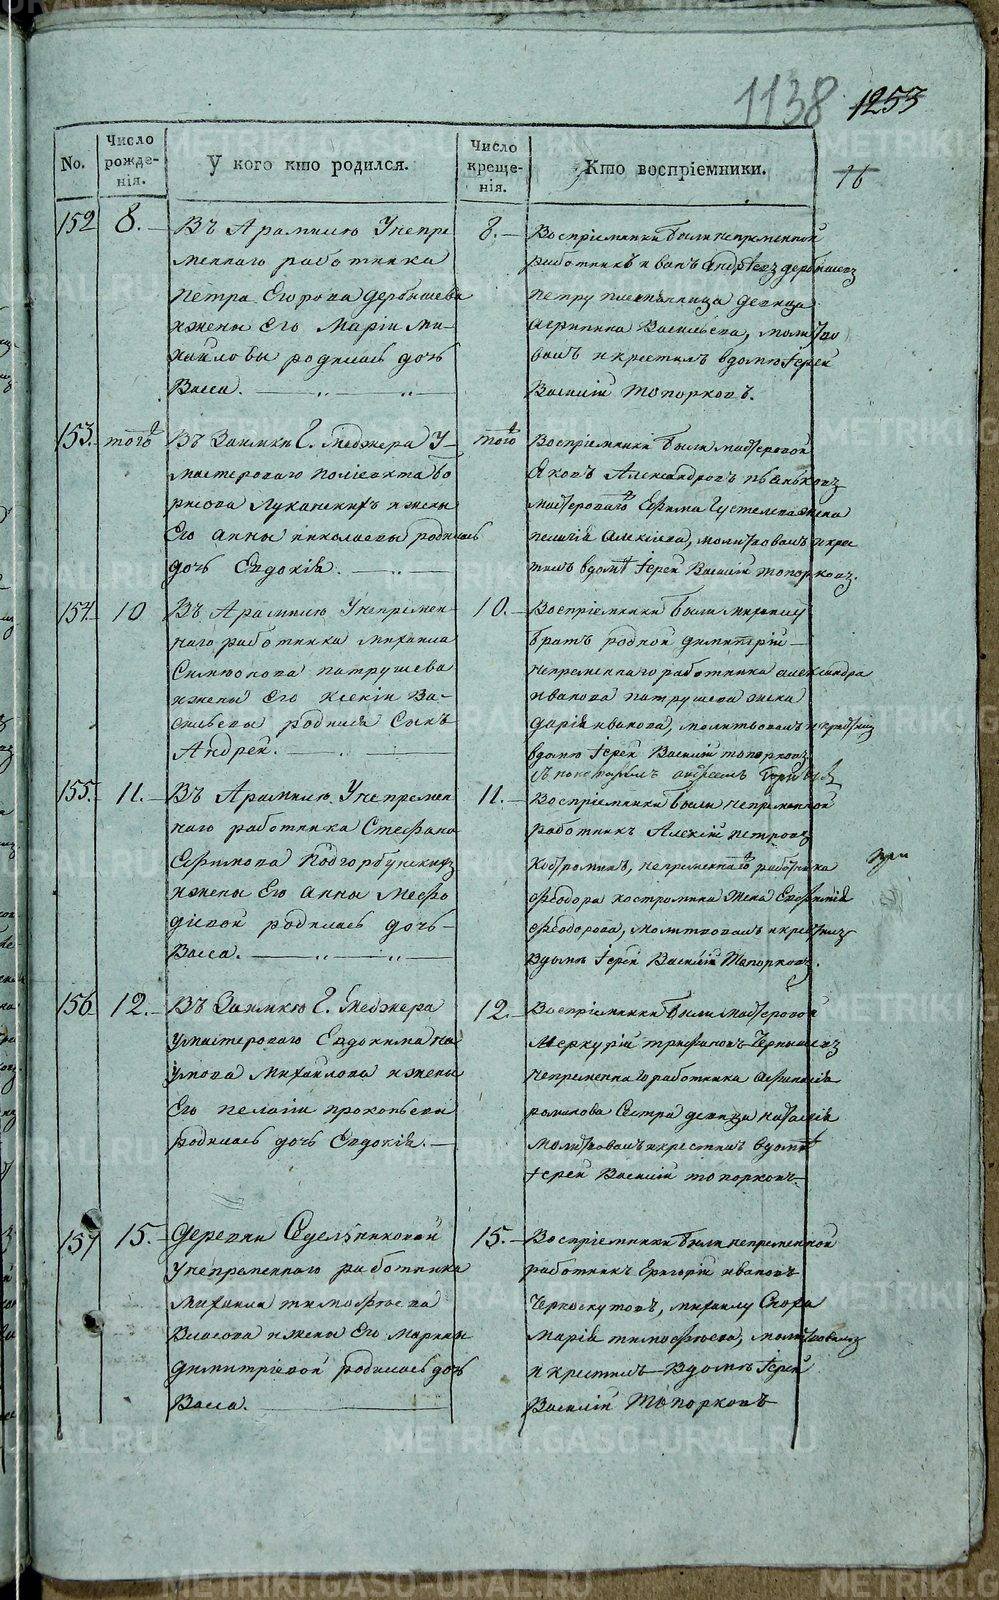 1138 1253
No.
Число рожде-нія.
У кого кто родился.
Число креще-нія.
Кто воспріемники.
16
152
8.
Въ Арамилю Унепре
меннаго работника
Петра Егорова Дербышева
и жены Его Маріи Ми-
хайловы родилась дочь
Васса.
8.
Воспріемники были непременной
работникъ иванъ Андреевъ дербышевъ
петру племянница девица
Агрипина Васильева, молитво
валъ и крестилъ вдомю Іерей
Василій Топорковъ.
153.
того
Въ Заимки Г. Меджера У
мастероваго Полиекта Бо
рисова Луканскихъ и жены
Его Анны николаевы родилась
дочь Евдокія.
того
Воспріемники были мастеровой
Яковъ Александровъ
мастероваго Ефима жена
пелагія Алексіева, молитвовалъ и крес
тилъ вдомѣ Іерей Василій топорковъ.
154.
10
Въ Арамилю Унепремен-
наго работника михаила
Симионова патрушева
и жены Его Ксеніи Ва-
сильевы родился Сынъ
Андрей.
10.
Воспріемники были михаилу
братъ родной димитрій
непременнаго работника александра
иванова патрушева жена
дарія иванова, молитвовалъ и крестилъ
вдомю Іерей Василій топорковъ
155.
11.
Въ Арамилю Унепремен
наго работника Стефана
Ефимова Подгорбунскихъ
и жены Его анны Мефо
діевой родилась дочь
Васса.
11.
Воспріемники были непременной
работникъ Алексій петровъ
Костроминъ, непременнаго работника
Феодора костромина жена Евфимія
Феодорова, молитвовалъ и крестилъ
вдомѣ Іерей Василій Топорковъ.
156
12.
Въ Заимкю Г. Меджера
умастероваго Евдокима На
умова Михайлова и жены
Его пелагіи прокопьевы
родилась дочь Евдокія.
12.
Воспріемники были мастеровой
Меркурій трифановъ Чернышевъ
непременнаго работника Афанасія
романова Сестра девица наталія
Молитвовалъ и крестилъ вдомѣ
Іерей Василій топорковъ
157
15.
Деревни Седельниковой
Унепременнаго работника
Михаила тимофеева
Власова и жены Его Марины
димитріевой родилась дочь
Васса.
15.
Воспріемники были непременной
работникъ Григорій ивановъ
Черноскутовъ, михаилу Сноха
Марія тимофеева, молитвовалъ
и крестилъ вдомѣ Іерей
Василій Топорковъ
METRIKI.GASO-URAL.RU